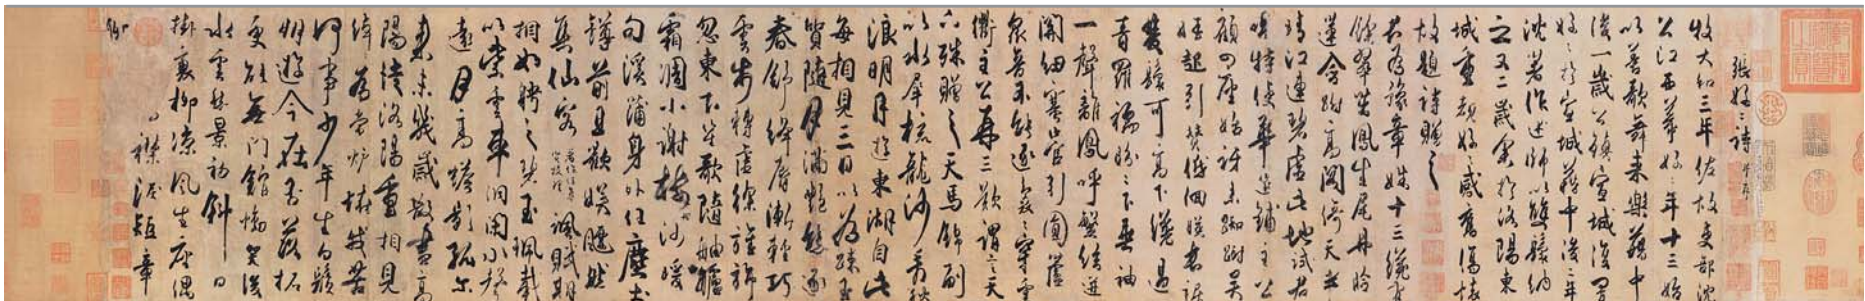 張好々詩 并序
牧大和三年佐故吏部沈
公江西幕好々年十三始
以善歌舞来樂籍中
後一歲公鎮宣城復置
好々於宣城籍中後二年
沈著作述師以雙鬟納
之又二歲余於洛陽東
城重覩好々感舊傷懷
故題詩贈之
君為豫章姝十三纔有
餘翠茁鳳生尾丹臉
蓮含跗高閣倚天半
晴江連碧虛此地試君
唱特使華筵鋪主公
顧四座始訝來踟蹰吳
娃起引贊低佪暎長裾
雙鬟可高下纔過
青羅襦盼々下垂袖
一聲離鳳呼繁絃迸
關紐塞管引圓蘆
衆音不能逐裊々穿雲
衢主公再三歎謂言天
下殊贈之天馬錦副
以水犀梳龍沙看秋
浪明月遊東湖自此
每相見三日以為疎玉
質隨月滿艷態逐
春舒絳脣漸輕巧
雲步轉虛徐旌旆
忽東下笙歌隨舳艫
霜凋小謝樹沙暖
句溪蒲身外任塵土
罇前且歡娛飄然
集仙客 著作任集賢校理 諷賦期
相如聘之碧玉珮載
以紫雲車洞閉水聲
遠月高蟾影孤尔
來未幾歲散盡高
陽徒洛陽重相見
綽々為當爐怪我苦
何事少年生白鬚
朋遊今在否落拓
更能無門館慟哭後
水雲愁景初斜日
掛衰柳涼風生座隅
襟淚短章
聊